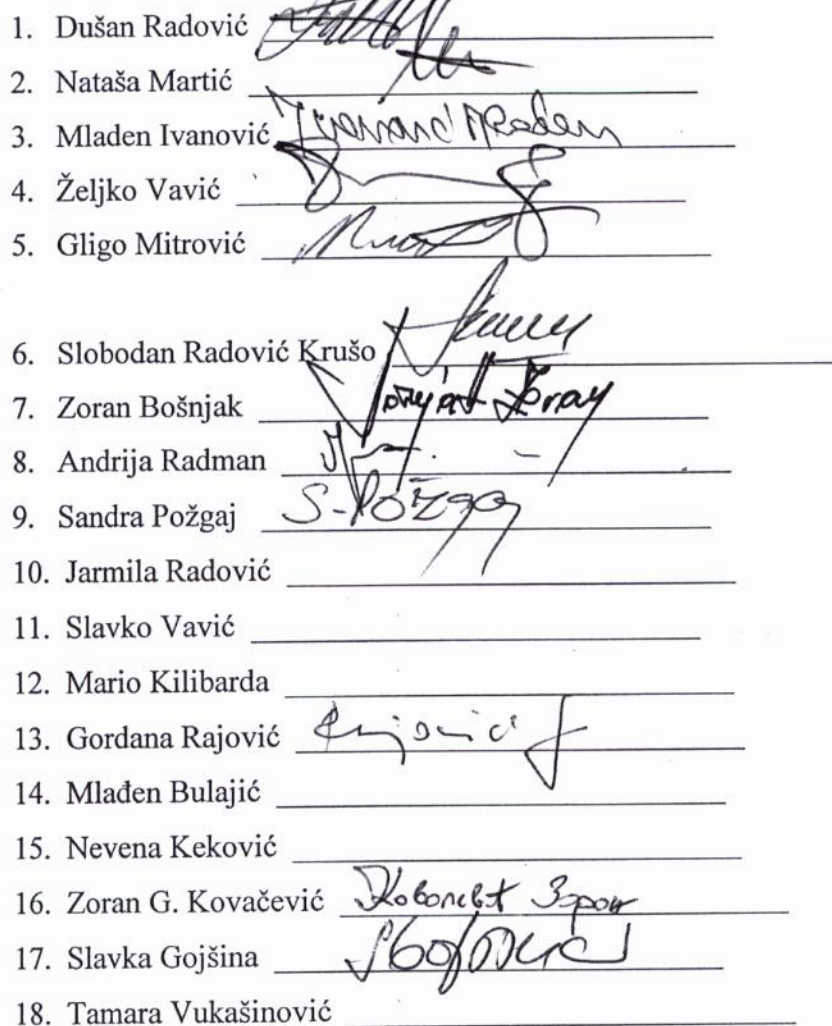 1. Dušan Radović
2. Nataša Martić
3. Mladen Ivanović Ivanović Mladen
4. Željko Vavić
5. Gligo Mitrović
6. Slobodan Radović Krušo
7. Zoran Bošnjak
8. Andrija Radman
9. Sandra Požgaj S-Požgaj
10. Jarmila Radović
11. Slavko Vavić
12. Mario Kilibarda
13. Gordana Rajović
14. Mlađen Bulajić
15. Nevena Keković
16. Zoran G. Kovačević
17. Slavka Gojšina
18. Tamara Vukašinović